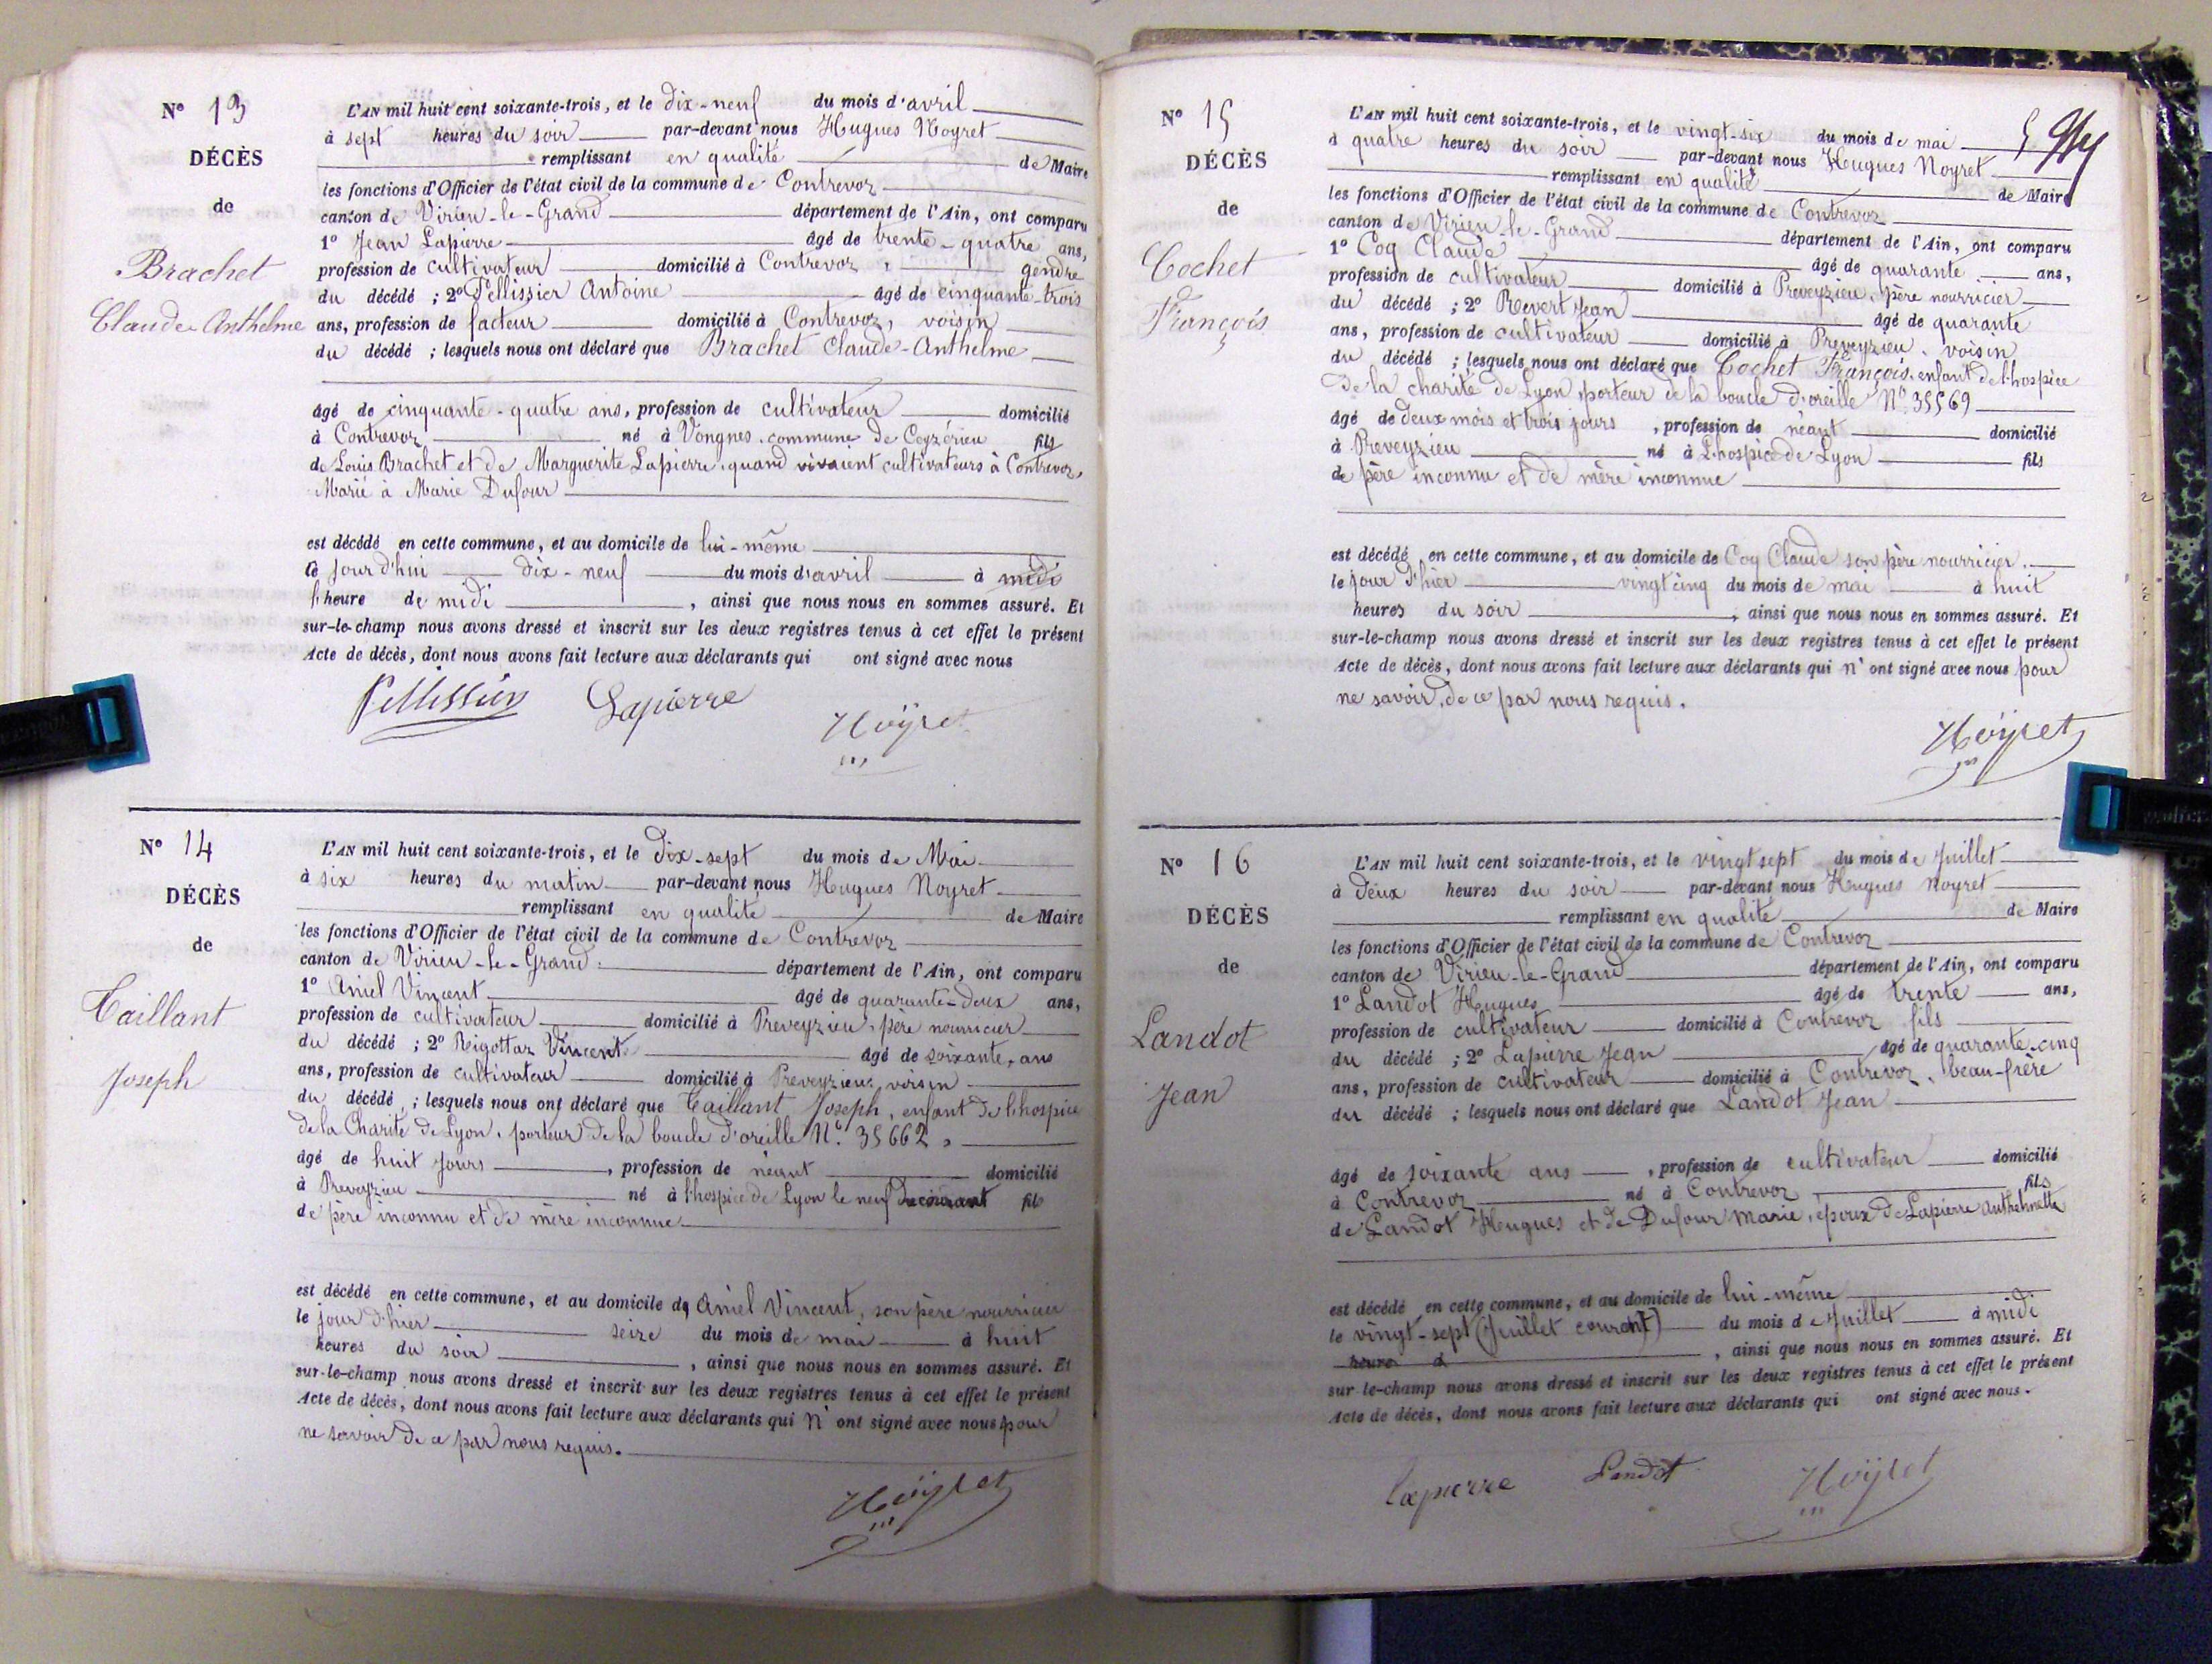 N° 13
DÉCÈS
de
Brachet
Claude Anthelme
L'AN mil huit cent soixante-trois, et le dix-neuf du mois d'avril
à sept heures du soir par-devant nous Hugues Noyret
remplissant en qualité de Maire
les fonctions d'Officier de l'état civil de la commune de Contrevoz
canton de Virieu-le-Grand département de l'Ain, ont comparu
1° Jean Lapierre âgé de trente-quatre ans,
profession de cultivateur domicilié à Contrevoz, gendre
du décédé ; 2° Pellissier Antoine âgé de cinquante-trois
ans, profession de facteur domicilié à Contrevoz, voisin
du décédé ; lesquels nous ont déclaré que Brachet Claude-Anthelme
âgé de cinquante-quatre ans, profession de cultivateur domicilié
à Contrevoz né à Vongnes, commune de Ceyzérieu fils
de Louis Brachet et de Marguerite Lapierre, quand vivaient cultivateurs à Contrevoz,
Marié à Marie Dufour
est décédé en cette commune, et au domicile de lui-même
ce jourd'hui dix-neuf du mois d'avril à midi
l'heure de midi, ainsi que nous nous en sommes assuré. Et
sur-le-champ nous avons dressé et inscrit sur les deux registres tenus à cet effet le présent
Acte de décès, dont nous avons fait lecture aux déclarants qui ont signé avec nous
Pellissier Lapierre Noÿret
N° 14
DÉCÈS
de
Caillant
Joseph
L'AN mil huit cent soixante-trois, et le dix-sept du mois de Mai
à six heures du matin par-devant nous Hugues Noyret
remplissant en qualité de Maire
les fonctions d'Officier de l'état civil de la commune de Contrevoz
canton de Virieu-le-Grand département de l'Ain, ont comparu
1° Aniel Vincent âgé de quarante-deux ans,
profession de cultivateur domicilié à Preveyzieu, père nourricier
du décédé ; 2° Rigottaz Vincent âgé de soixante, ans
ans, profession de cultivateur domicilié à Preveyzieu, voisin
du décédé ; lesquels nous ont déclaré que Caillant Joseph, enfant de l'hospice
de la Charité de Lyon, porteur de la boucle d'oreille N° 35662,
âgé de huit jours, profession de néant domicilié
à Preveyzieu né à l'hospice de Lyon le neuf du courant fils
de père inconnu et de mère inconnue
est décédé en cette commune, et au domicile de Aniel Vincent, son père nourricier
le jour d'hier seize du mois de mai à huit
heures du soir, ainsi que nous nous en sommes assuré. Et
sur-le-champ nous avons dressé et inscrit sur les deux registres tenus à cet effet le présent
Acte de décès, dont nous avons fait lecture aux déclarants qui n'ont signé avec nous pour
ne savoir de ce par nous requis.
Noÿret
N° 15
DÉCÈS
de
Cochet
François
L'AN mil huit cent soixante-trois, et le vingt-six du mois de mai 5
à quatre heures du soir par-devant nous Hugues Noyret
remplissant en qualité de Maire
les fonctions d'Officier de l'état civil de la commune de Contrevoz
canton de Virieu-le-Grand département de l'Ain, ont comparu
1° Coq Claude âgé de quarante ans,
profession de cultivateur domicilié à Preveyzieu, père nourricier
du décédé ; 2° Revert Jean âgé de quarante
ans, profession de cultivateur domicilié à Preveyzieu, voisin
du décédé ; lesquels nous ont déclaré que Cochet François, enfant de l'hospice
de la charité de Lyon, porteur de la boucle d'oreille N° 35569
âgé de deux mois et trois jours, profession de néant domicilié
à Preveyzieu né à L'hospice de Lyon fils
de père inconnu et de mère inconnue
est décédé en cette commune, et au domicile de Coq Claude son père nourricier.
le jour d'hier vingt cinq du mois de mai à huit
heures du soir, ainsi que nous nous en sommes assuré. Et
sur-le-champ nous avons dressé et inscrit sur les deux registres tenus à cet effet le présent
Acte de décès, dont nous avons fait lecture aux déclarants qui n'ont signé avec nous pour
ne savoir, de ce par nous requis.
Noÿret
N° 16
DÉCÈS
de
Landot
Jean
L'AN mil huit cent soixante-trois, et le vingt sept du mois de Juillet
à deux heures du soir par-devant nous Hugues Noyret
remplissant en qualité de Maire
les fonctions d'Officier de l'état civil de la commune de Contrevoz
canton de Virieu-le-Grand département de l'Ain, ont comparu
1° Landot Hugues âgé de trente ans,
profession de cultivateur domicilié à Contrevoz fils
du décédé ; 2° Lapierre Jean âgé de quarante-cinq
ans, profession de cultivateur domicilié à Contrevoz, beau-frère
du décédé ; lesquels nous ont déclaré que Landot Jean
âgé de soixante ans, profession de cultivateur domicilié
à Contrevoz né à Contrevoz fils
de Landot Hugues et de Dufour Marie, époux de Lapierre Anthelmette
est décédé en cette commune, et au domicile de lui-même
le vingt-sept (Juillet courant) du mois de Juillet à midi
heures d, ainsi que nous nous en sommes assuré. Et
sur-le-champ nous avons dressé et inscrit sur les deux registres tenus à cet effet le présent
Acte de décès, dont nous avons fait lecture aux déclarants qui ont signé avec nous.
Lapierre Landot Noÿret